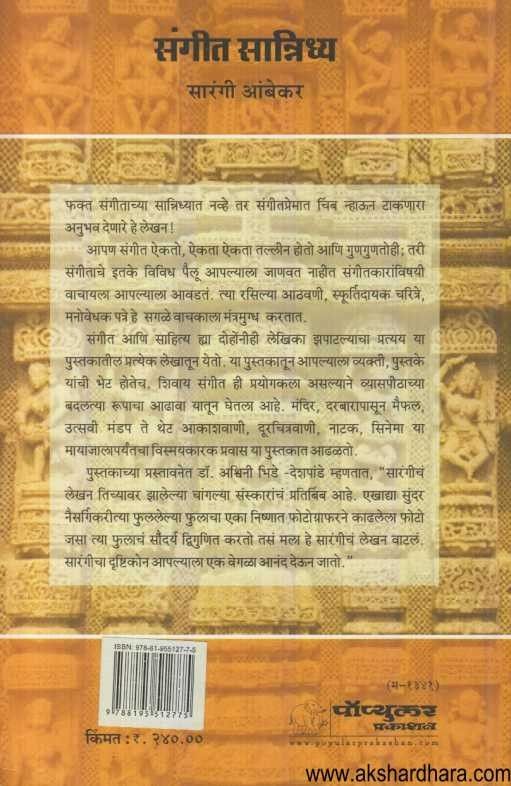 संगीत सान्निध्य
सारंगी आंबेकर
फक्त संगीताच्या सान्निध्यात नव्हे तर संगीतप्रेमात चिंब न्हाऊन टाकणारा
अनुभव देणारे हे लेखन!
आपण संगीत ऐकतो, ऐकता ऐकता तल्लीन होतो आणि गुणगुणतोही; तरी
संगीताचे इतके विविध पैलू आपल्याला जाणवत नाहीत संगीतकारांविषयी
वाचायला आपल्याला आवडतं. त्या रसिल्या आठवणी, स्फूर्तिदायक चरित्रे,
मनोवेधक पत्रे हे सगळे वाचकाला मंत्रमुग्ध करतात.
संगीत आणि साहित्य ह्या दोहोंनीही लेखिका झपाटल्याचा प्रत्यय या
पुस्तकातील प्रत्येक लेखातून येतो. या पुस्तकातून आपल्याला व्यक्ती, पुस्तके
यांची भेट होतेच, शिवाय संगीत ही प्रयोगकला असल्याने व्यासपीठाच्या
बदलत्या रूपाचा आढावा यातून घेतला आहे. मंदिर, दरबारापासून मैफल,
उत्सवी मंडप ते थेट आकाशवाणी, दूरचित्रवाणी, नाटक, सिनेमा या
मायाजालापर्यंतचा विस्मयकारक प्रवास या पुस्तकात आढळतो.
पुस्तकाच्या प्रस्तावनेत डॉ. अश्विनी भिडे -देशपांडे म्हणतात, "सारंगीचं
लेखन तिच्यावर झालेल्या चांगल्या संस्कारांचं प्रतिबिंब आहे. एखाद्या सुंदर
नैसर्गिकरीत्या फुललेल्या फुलाचा एका निष्णात फोटोग्राफरने काढलेला फोटो
जसा त्या फुलाचं सौंदर्य द्विगुणित करतो तसं मला हे सारंगीचं लेखन वाटलं.
सारंगीचा दृष्टिकोन आपल्याला एक वेगळा आनंद देऊन जातो."
ISBN 978-81-955127-7-5
9 788195 512775
किंमत : रु. २४०.००
(म-१३४१)
पॉप्युलर
प्रकाशन
www.popularprakashan.com
www.akshardhara.com